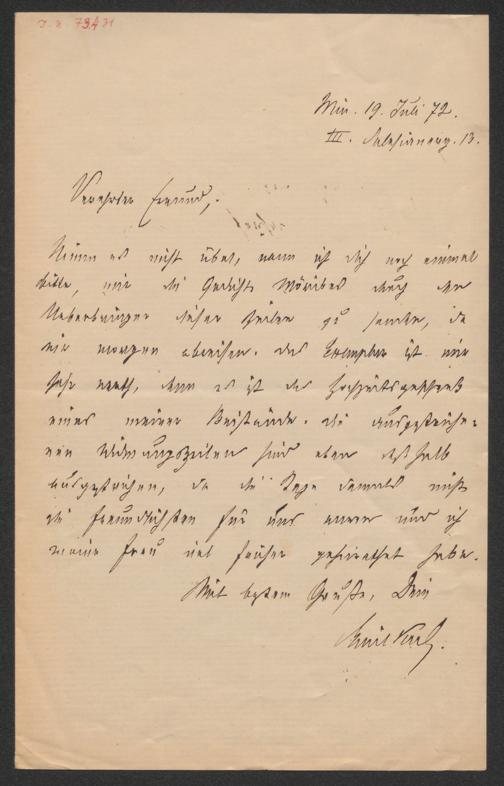 J. N. 73.471
Wien. 19. Juli 72.
III. Salesianerg. 13.
Verehrter Freund,
Nimm es nicht übel, wenn ich Dich noch einmal
bitte, mir die Gedichte Mörikes durch den
Ueberbringer dieser Zeilen zu senden, da
wir morgen abreisen. Das Exemplar ist mir
sehr werth, denn es ist das Hochzeitsgeschenk
eines meiner Beistände. Die ausgestriche=
nen Widmungszeilen sind eben deßhalb
ausgestrichen, da die Tage damals nicht
die freundlichsten für uns waren und ich
meine Frau viel früher geheirathet habe.
Mit bestem Gruße, Dein